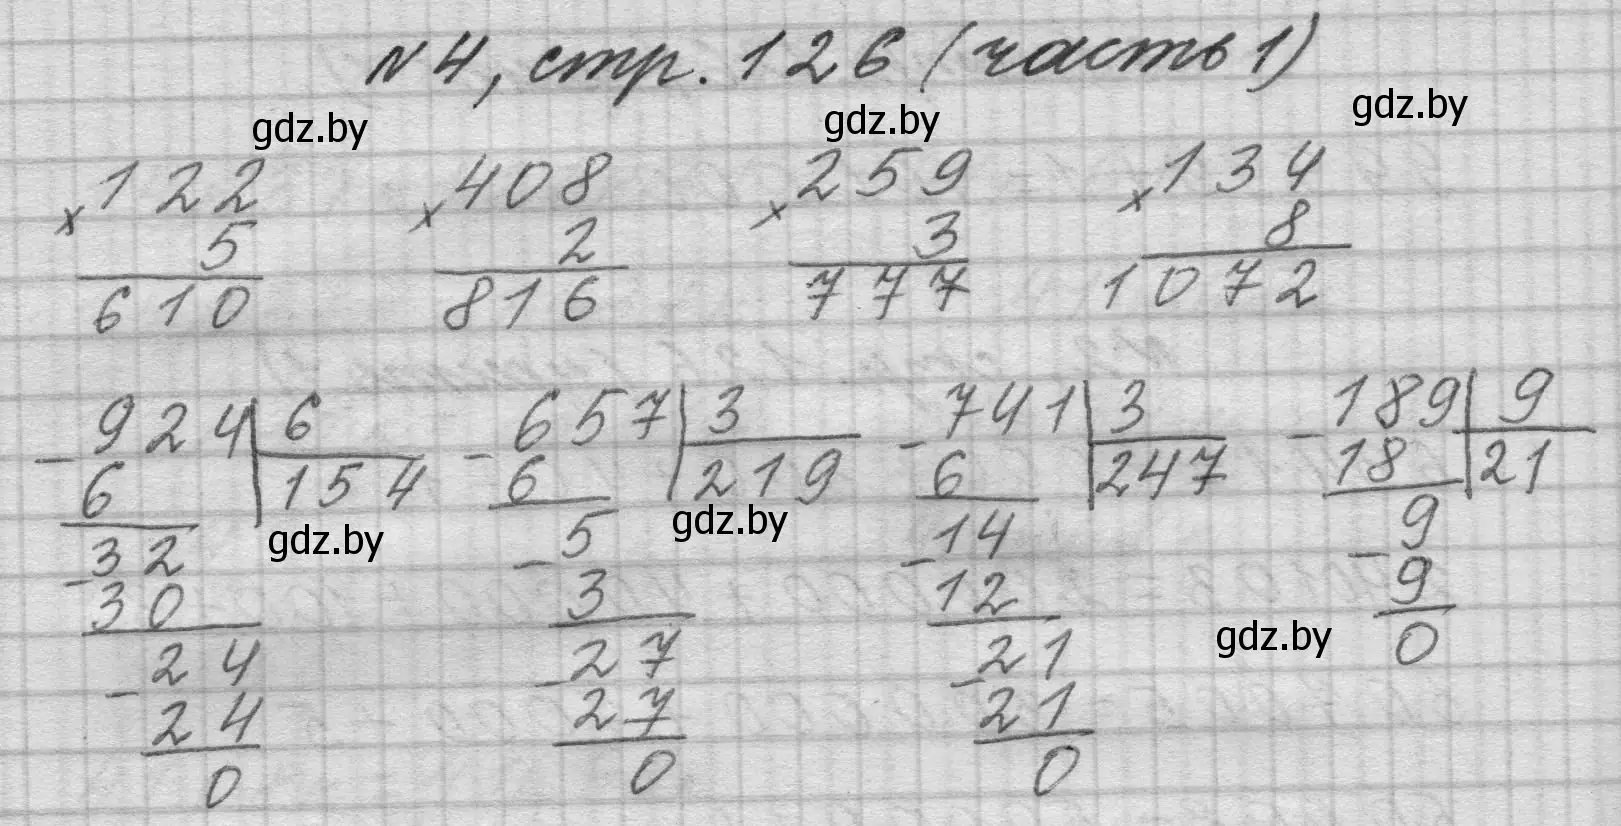 №4, стр. 126 (часть 1)
gdz.by gdz.by gdz.by
122 408 259 134
× 5 × 2 × 3 × 8
610 816 777 1072
- 924 | 6 - 657 | 3 - 741 | 3 - 189 | 9
6 154 6 219 6 247 18 21
gdz.by gdz.by
- 32 - 5 - 14 - 9
30 3 12 9
gdz.by
- 24 - 27 - 21 0
24 27 21
0 0 0